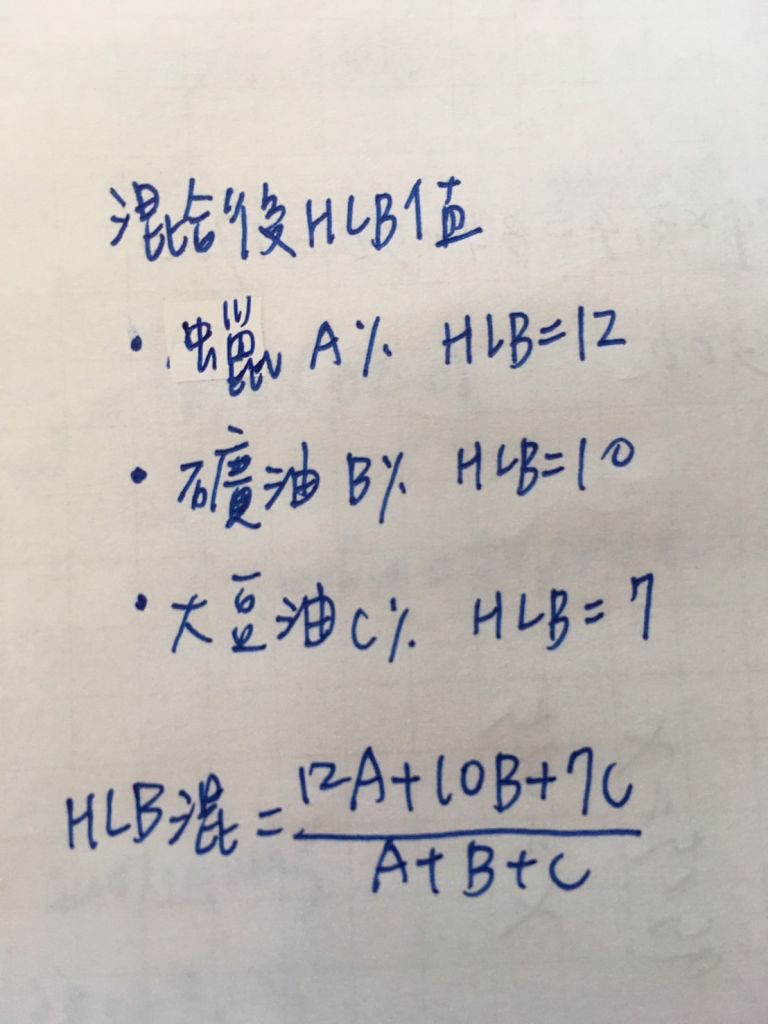 混合後HLB值
· 蠟 A% HLB=12
· 礦油 B% HLB=10
· 大豆油 C% HLB=7
HLB混 = 12A+10B+7C
A+B+C